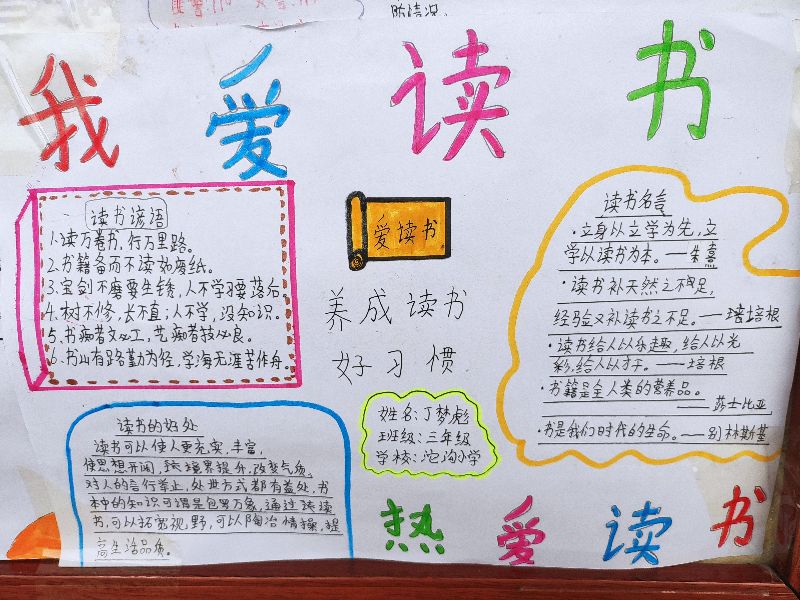 防情况。
我爱读书
读书谚语
1.读万卷书，行万里路。
2.书籍备而不读如废纸。
3.宝剑不磨要生锈，人不学习要落后。
4.树不修，长不直；人不学，没知识。
5.书痴者文必工，艺痴者技必良。
6.书山有路勤为径，学海无涯苦作舟。
爱读书
养成读书
好习惯
读书名言
·立身以立学为先，立
学以读书为本。——朱熹
·读书补天然之不足，
经验又补读书之不足。——培培根
·读书给人以乐趣，给人以光
彩，给人以才干。——培根
·书籍是全人类的营养品。
——莎士比亚
·书是我们时代的生命。——别林斯基
读书的好处
读书可以使人更充实，丰富，
使思想开阔，跨境界提升，改变气质，
对人的言行举止，处世方式都有益处，书
本中的知识可谓是包罗万象，通过读读
书，可以拓宽视野，可以陶冶情操，提
高生活品质。
姓名：丁梦彪
班级：三年级
学校：沱沟小学
热爱读书